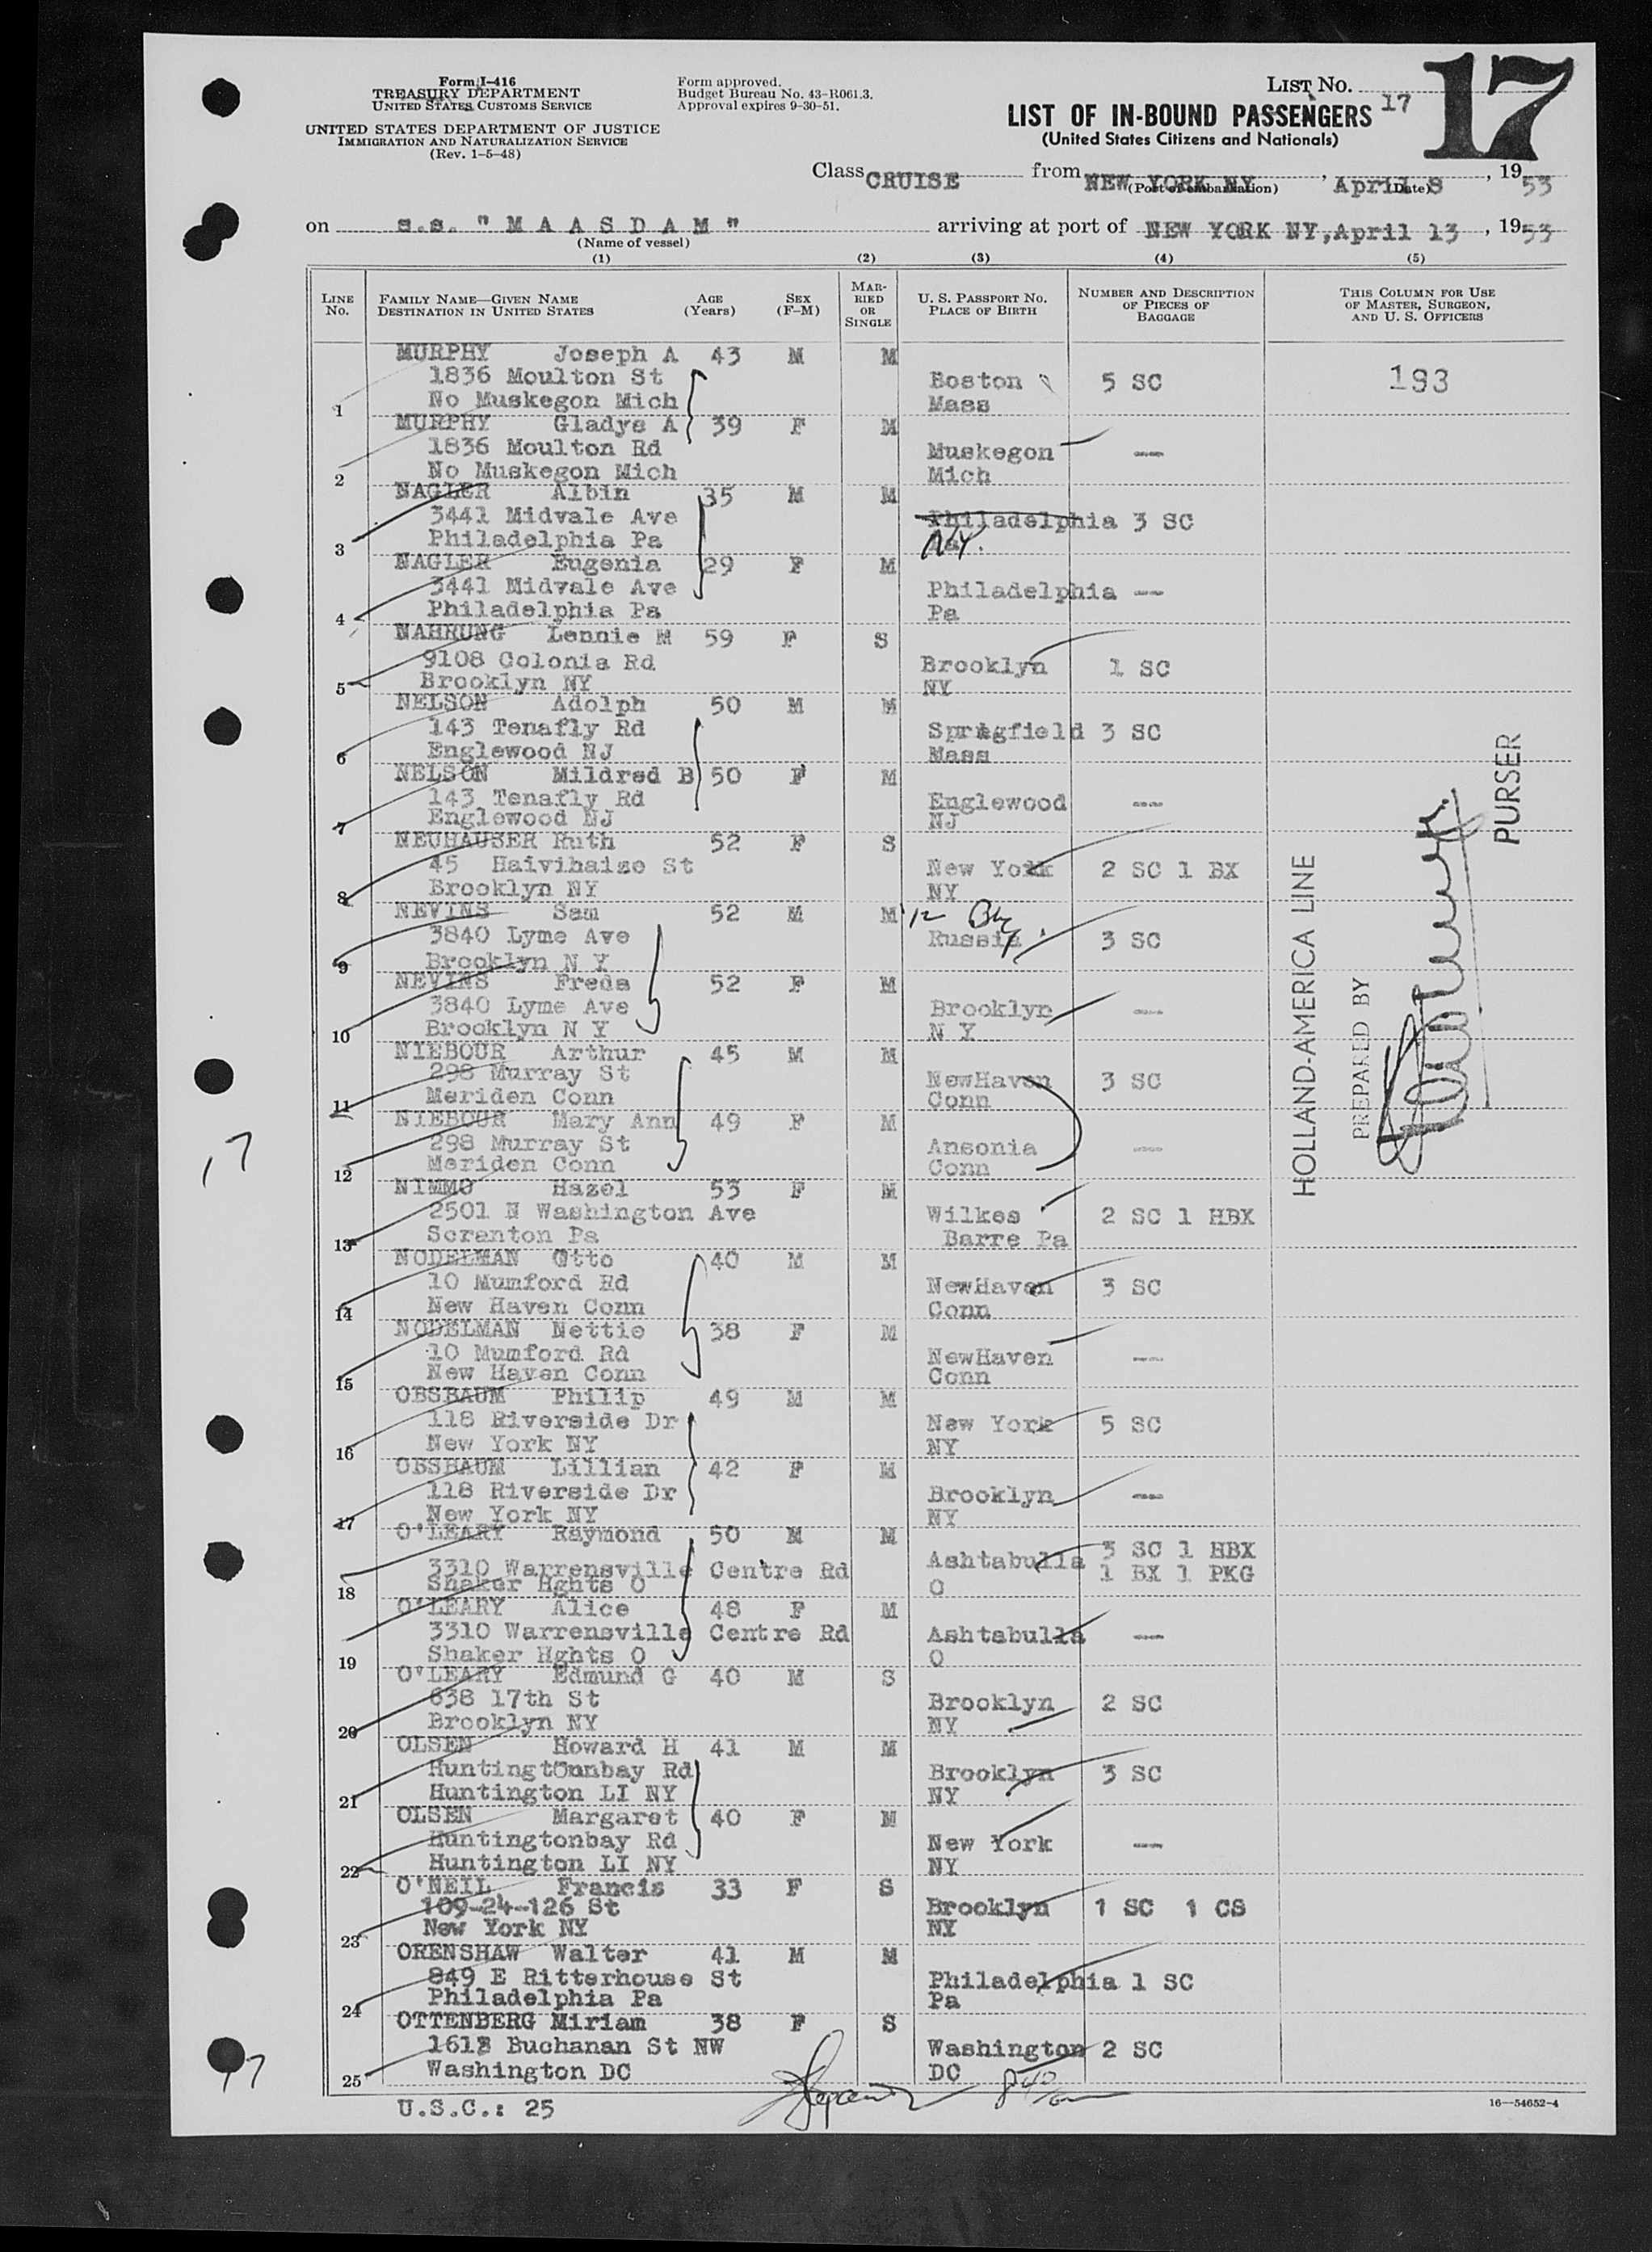 Form I-416
TREASURY DEPARTMENT
UNITED STATES CUSTOMS SERVICE
UNITED STATES DEPARTMENT OF JUSTICE
IMMIGRATION AND NATURALIZATION SERVICE
(Rev. 1-5-48)
Form approved.
Budget Bureau No. 43-R061.3.
Approval expires 9-30-51.
LIST No. 17
17
LIST OF IN-BOUND PASSENGERS
(United States Citizens and Nationals)
Class CRUISE from NEW YORK NY, April 8, 1953
(Port of embarkation) (Date)
on s.s. "MAASDAM" arriving at port of NEW YORK NY, April 13, 1953
(Name of vessel)
(1) (2) (3) (4) (5)
LINE No.
FAMILY NAME—GIVEN NAME DESTINATION IN UNITED STATES
AGE (Years)
SEX (F-M)
MARRIED OR SINGLE
U. S. PASSPORT NO. PLACE OF BIRTH
NUMBER AND DESCRIPTION OF PIECES OF BAGGAGE
THIS COLUMN FOR USE OF MASTER, SURGEON, AND U. S. OFFICERS
MURPHY Joseph A 43 M M
1836 Moulton St Boston 5 SC 193
1 No Muskegon Mich Mass
MURPHY Gladys A 39 F M
1836 Moulton Rd Muskegon --
2 No Muskegon Mich Mich
NAGLER Albin 35 M M
3441 Midvale Ave Philadelphia 3 SC
3 Philadelphia Pa NY.
NAGLER Eugenia 29 F M
3441 Midvale Ave Philadelphia --
4 Philadelphia Pa Pa
NAHRUNG Lennie M 59 F S
9108 Colonia Rd Brooklyn 1 SC
5 Brooklyn NY NY
NELSON Adolph 50 M M
143 Tenafly Rd Springfield 3 SC
6 Englewood NJ Mass
NELSON Mildred B 50 F M
143 Tenafly Rd Englewood --
7 Englewood NJ NJ
NEUHAUSER Ruth 52 F S
45 Haivihaize St New York 2 SC 1 BX
8 Brooklyn NY NY
NEVINS Sam 52 M M
3840 Lyme Ave Russia 3 SC
9 Brooklyn N Y
NEVINS Freda 52 F M
3840 Lyme Ave Brooklyn --
10 Brooklyn N Y N Y
NIEBOUR Arthur 45 M M
298 Murray St NewHaven 3 SC
11 Meriden Conn Conn
NIEBOUR Mary Ann 49 F M
298 Murray St Ansonia --
12 Meriden Conn Conn
NIMMO Hazel 53 F M
2501 N Washington Ave Wilkes 2 SC 1 HBX
13 Scranton Pa Barre Pa
NODELMAN Otto 40 M M
10 Mumford Rd NewHaven 3 SC
14 New Haven Conn Conn
NODELMAN Nettie 38 F M
10 Mumford Rd NewHaven --
15 New Haven Conn Conn
OBSBAUM Philip 49 M M
118 Riverside Dr New York 5 SC
16 New York NY NY
OBSBAUM Lillian 42 F M
118 Riverside Dr Brooklyn --
17 New York NY NY
O'LEARY Raymond 50 M M
3310 Warrensville Centre Rd Ashtabulla 3 SC 1 HBX
18 Shaker Hghts O O 1 BX 1 PKG
O'LEARY Alice 48 F M
3310 Warrensville Centre Rd Ashtabulla --
19 Shaker Hghts O O
O'LEARY Edmund G 40 M S
638 17th St Brooklyn 2 SC
20 Brooklyn NY NY
OLSEN Howard H 41 M M
Huntingtonbay Rd Brooklyn 3 SC
21 Huntington LI NY NY
OLSEN Margaret 40 F M
Huntingtonbay Rd New York --
22 Huntington LI NY NY
O'NEIL Francis 33 F S
109-24-126 St Brooklyn 1 SC 1 CS
23 New York NY NY
ORENSHAW Walter 41 M M
849 E Ritterhouse St Philadelphia 1 SC
24 Philadelphia Pa Pa
OTTENBERG Miriam 38 F S
1613 Buchanan St NW Washington 2 SC
25 Washington DC DC
U.S.C.: 25
16—54652-4
HOLLAND-AMERICA LINE
PREPARED BY
PURSER
17
17